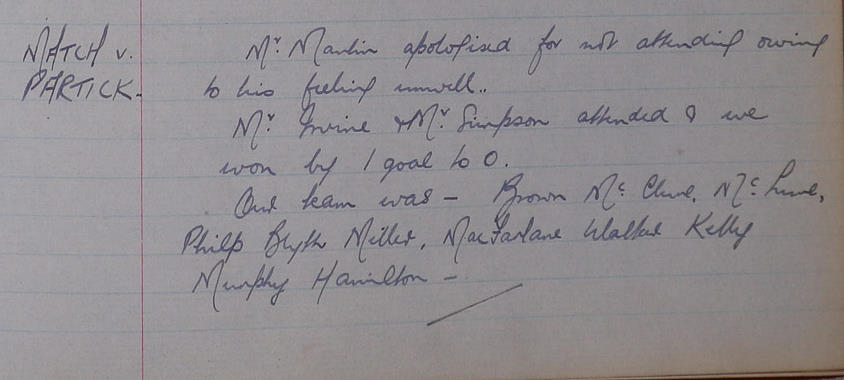 MATCH v.
PARTICK.
Mr. Martin apologised for not attending owing
to his feeling unwell..
Mr. Irvine & Mr. Simpson attended & we
won by 1 goal to 0.
Our team was – Brown Mc Clure, Mc Lure,
Philp Blyth Miller, MacFarlane Walker Kelly
Murphy Hamilton –